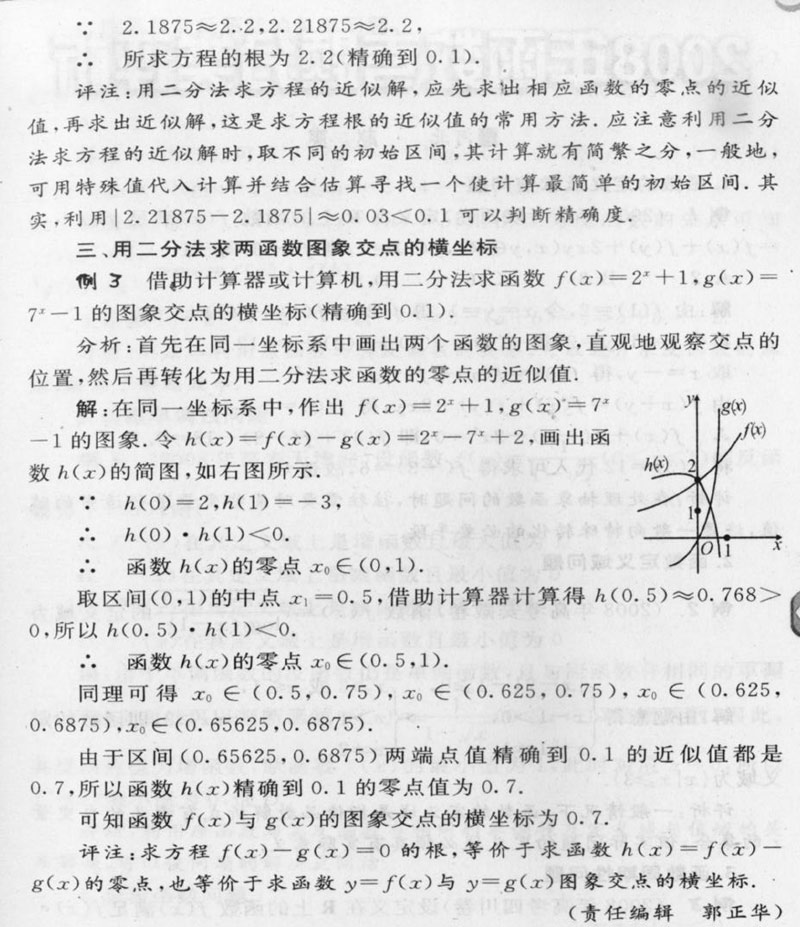 ∵ 2.1875≈2.2,2.21875≈2.2,
∴ 所求方程的根为2.2(精确到0.1).
评注:用二分法求方程的近似解,应先求出相应函数的零点的近似
值,再求出近似解,这是求方程根的近似值的常用方法.应注意利用二分
法求方程的近似解时,取不同的初始区间,其计算就有简繁之分,一般地,
可用特殊值代入计算并结合估算寻找一个使计算最简单的初始区间.其
实,利用|2.21875-2.1875|≈0.03<0.1可以判断精确度.
三、用二分法求两函数图象交点的横坐标
例3 借助计算器或计算机,用二分法求函数 f(x)=2ˣ+1,g(x)=
7ˣ-1的图象交点的横坐标(精确到0.1).
分析:首先在同一坐标系中画出两个函数的图象,直观地观察交点的
位置,然后再转化为用二分法求函数的零点的近似值.
解:在同一坐标系中,作出 f(x)=2ˣ+1,g(x)=7ˣ
-1的图象.令h(x)=f(x)-g(x)=2ˣ-7ˣ+2,画出函
数h(x)的简图,如右图所示.
y g(x)
f(x)
h(x) 2
1
O 1 x
∵ h(0)=2,h(1)=-3,
∴ h(0)·h(1)<0.
∴ 函数h(x)的零点x₀∈(0,1).
取区间(0,1)的中点x₁=0.5,借助计算器计算得h(0.5)≈0.768>
0,所以h(0.5)·h(1)<0.
∴ 函数h(x)的零点x₀∈(0.5,1).
同理可得 x₀∈(0.5,0.75),x₀∈(0.625,0.75),x₀∈(0.625,
0.6875),x₀∈(0.65625,0.6875).
由于区间(0.65625,0.6875)两端点值精确到0.1的近似值都是
0.7,所以函数h(x)精确到0.1的零点值为0.7.
可知函数f(x)与g(x)的图象交点的横坐标为0.7.
评注:求方程 f(x)-g(x)=0的根,等价于求函数h(x)=f(x)-
g(x)的零点,也等价于求函数y=f(x)与y=g(x)图象交点的横坐标.
(责任编辑 郭正华)